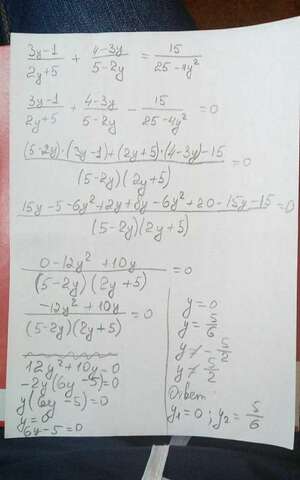 (3y-1)/(2y+5) + (4-3y)/(5-2y) = 15/(25-4y²)
(3y-1)/(2y+5) + (4-3y)/(5-2y) - 15/(25-4y²) = 0
((5-2y)·(3y-1)+(2y+5)·(4-3y)-15)/((5-2y)(2y+5)) = 0
(15y-5-6y²+2y+8y-6y²+20-15y-15)/((5-2y)(2y+5)) = 0
(0-12y²+10y)/((5-2y)(2y+5)) = 0
(-12y²+10y)/((5-2y)(2y+5)) = 0
12y²+10y=0
-2y(6y-5)=0
y(6y-5)=0
y=0
6y-5=0
y=0
y=5/6
y≠-5/2
y≠5/2
Ответ:
y₁=0; y₂=5/6